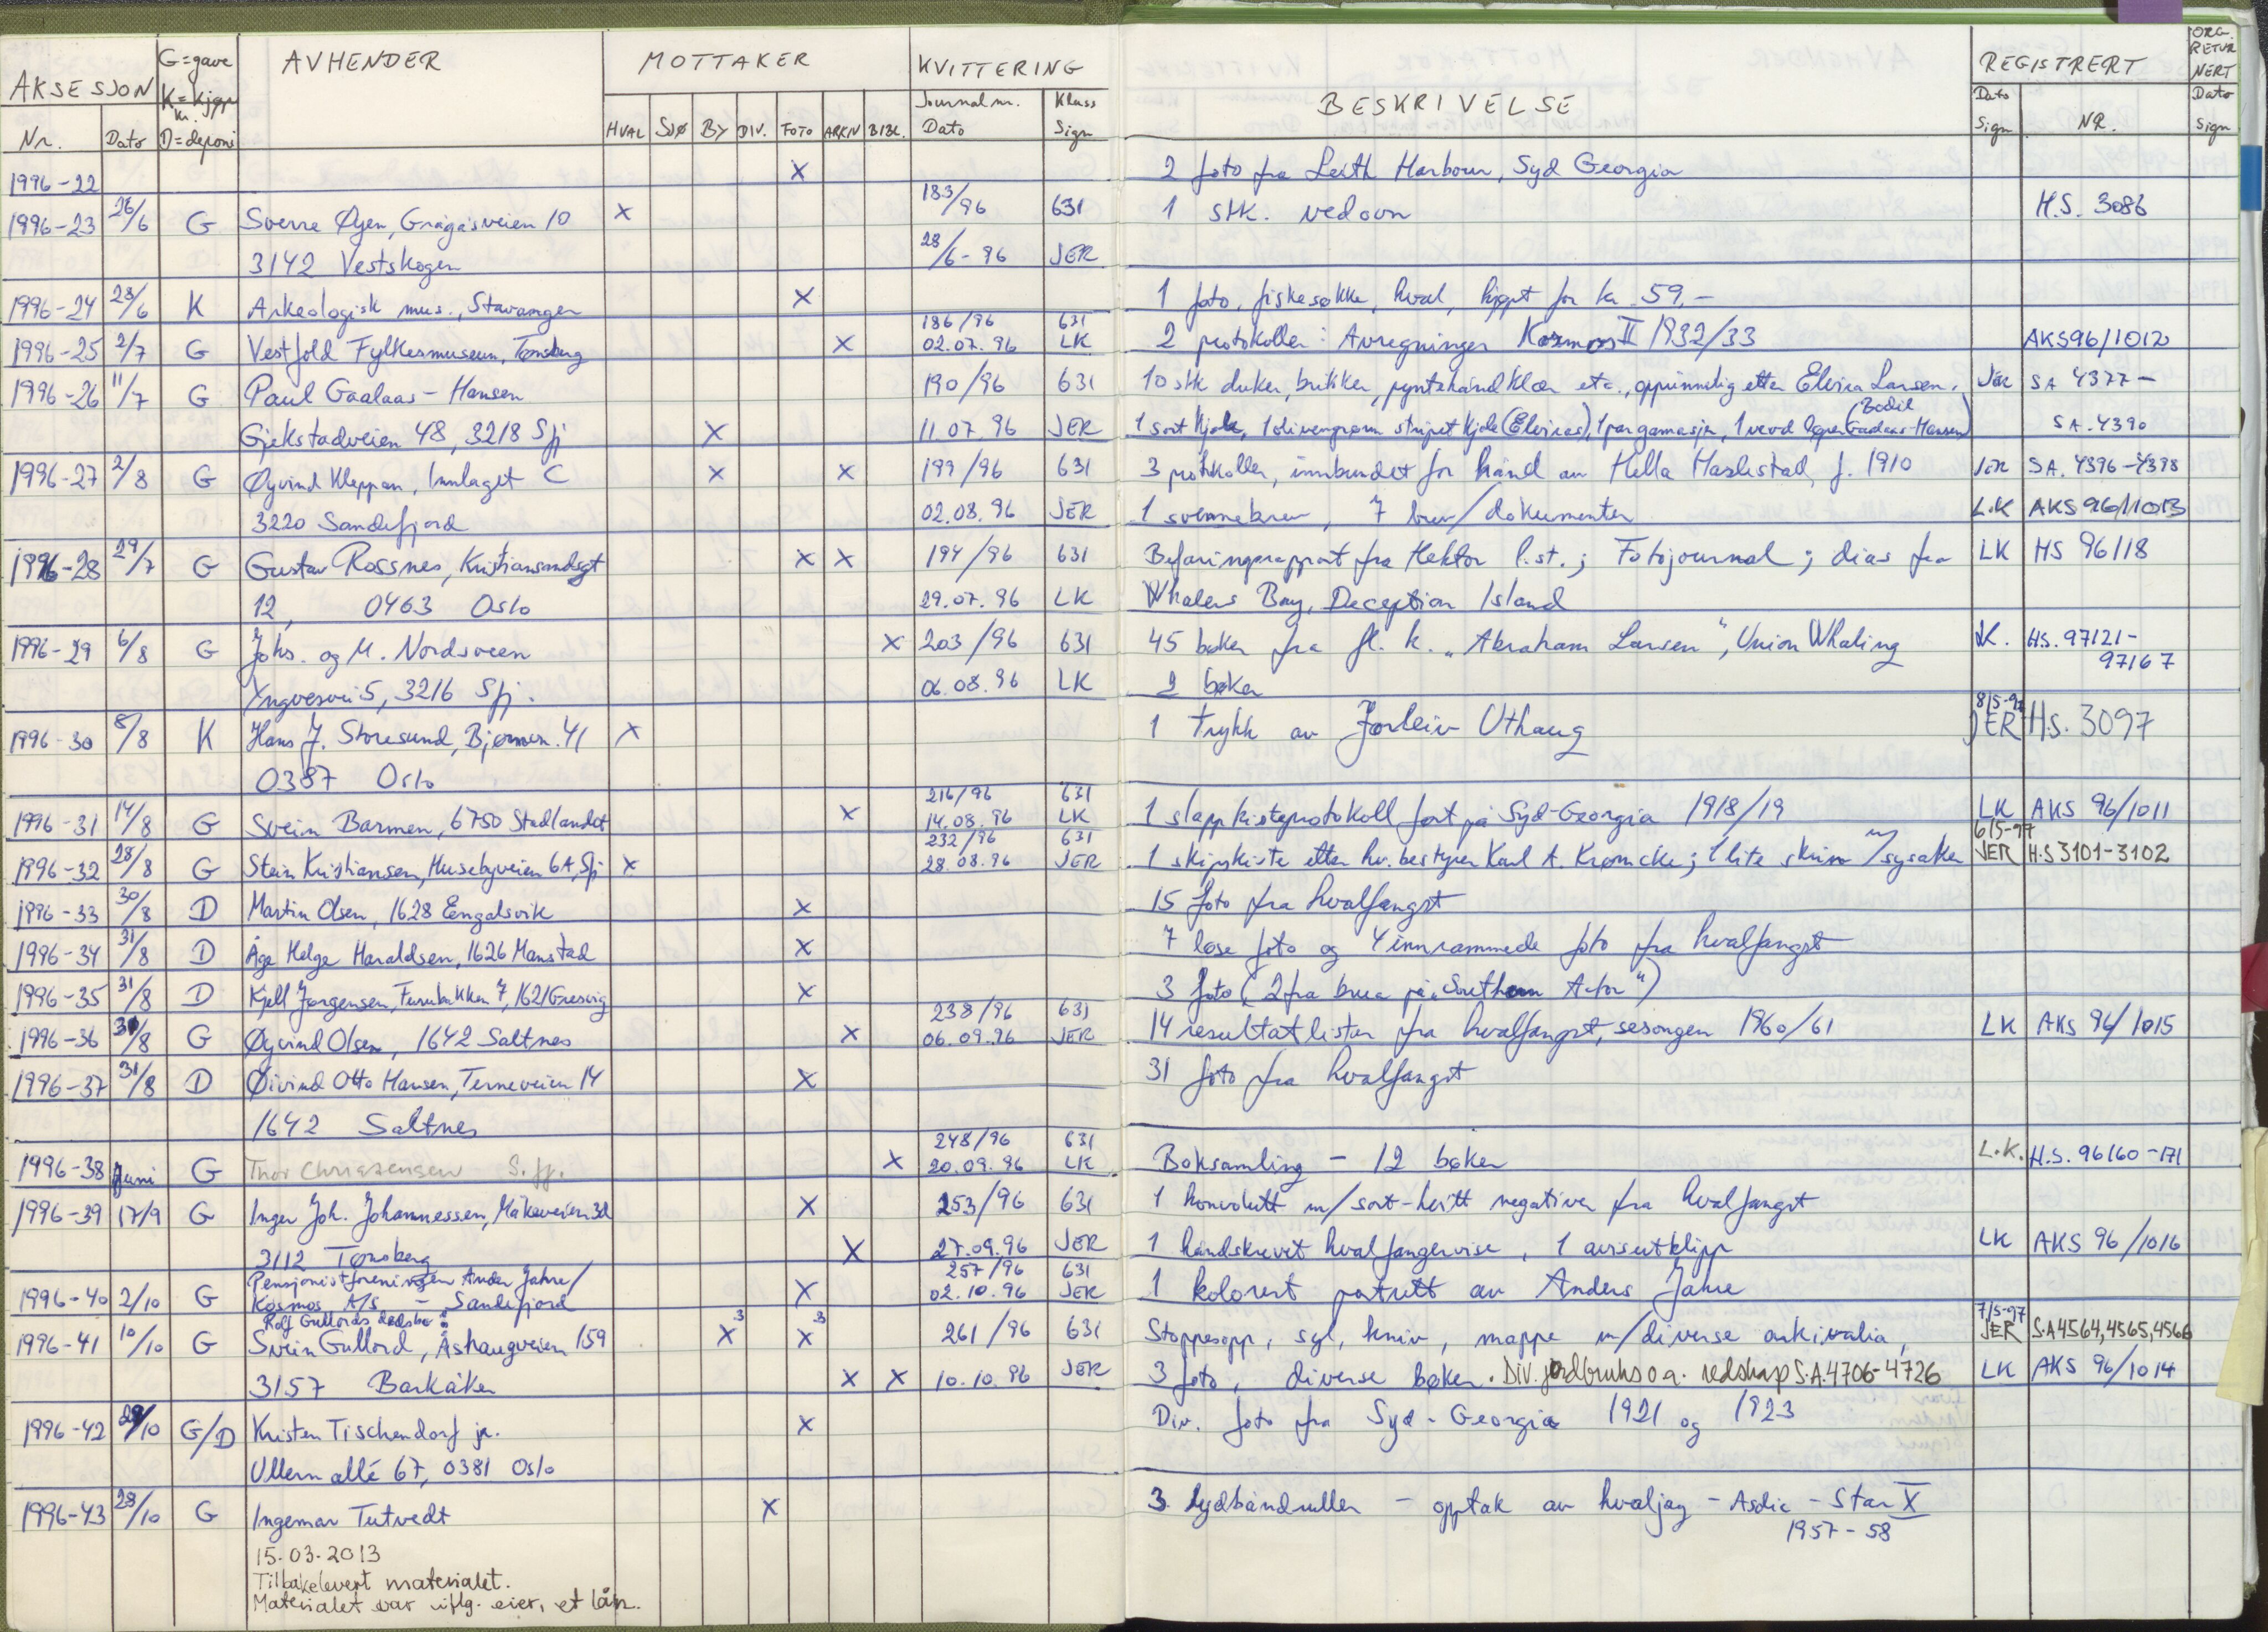 AKSESJON G=gave AVHENDER MOTTAKER KVITTERING BESKRIVELSE REGISTRERT ORG. RETURNERT
K=kjøp kr. Journal nr. Klass Dato Dato
Nr. Dato D=deponi HVAL SJØ BY DIV. FOTO ARKIV BIBL. Dato Sign Sign NR. Sign
1996-22 X 2 foto fra Leith Harbour, Syd Georgia
1996-23 26/6 G Sverre Øyen, Grågåsveien 10 X 183/96 631 1 stk. vedovn H.S. 3086
3142 Vestskogen 28/6-96 JER
1996-24 28/6 K Arkeologisk mus., Stavanger X 1 foto, fiskesøkke, hval, kjøpt for kr 59,-
186/96 631
1996-25 2/7 G Vestfold Fylkesmuseum, Tønsberg X 02.07.96 LK 2 protokoller: Avregninger Kosmos II 1932/33 AKS96/1012
1996-26 11/7 G Paul Gaalaas-Hansen 190/96 631 10 stk duker, brikker, pyntehåndklær etc., opprinnelig etter Elvira Larsen. JER SA 4377-
Gjekstadveien 48, 3218 Sfj X 11.07.96 JER 1 sort kjole, 1 olivengrønn stripet kjole (Elviras), 1 par gamasjer, (Bodil Gaalaas-Hansen) SA.4390
1996-27 2/8 G Øyvind Kleppan, Innlaget C X X 199/96 631 3 protokoller, innbundet for hånd av Hella Haslestad, f. 1910 JER SA. 4396-4398
3220 Sandefjord 02.08.96 JER 1 svennebrev, 7 brev/dokumenter L.K AKS 96/1013
1996-28 29/7 G Gustav Rossnes, Kristiansandsgt X X 194/96 631 Befaringsrapport fra Hektor l.st.; Fotojournal; dias fra LK HS 96118
12, 0463 Oslo 29.07.96 LK Whalers Bay, Deception Island
1996-29 6/8 G Johs. og M. Nordsveen X 203/96 631 45 bøker fra fl. k. "Abraham Larsen", Union Whaling LK. H.S. 97121-
97167
Yngvesvei 5, 3216 Sfj. 06.08.96 LK 2 bøker
1996-30 8/8 K Hans J. Storesund, Bjørnsv. 41 X 1 trykk av Jorleiv Uthaug 8/5-97 JER H.S. 3097
0387 Oslo
216/96 631
1996-31 14/8 G Svein Barmen, 6750 Stadlandet X 14.08.96 LK 1 slappkisteprotokoll ført på Syd-Georgia 1918/19 LK AKS 96/1011
232/96 631 6/5-97
1996-32 28/8 G Stein Kristiansen, Husebyveien 6A, Sfj X 28.08.96 JER 1 skipskiste etter hv.bestyrer Karl A. Krømcke; 1 lite skrin m/sysaker JER H.S 3101-3102
1996-33 30/8 D Martin Olsen, 1628 Engalsvik X 15 foto fra hvalfangst
1996-34 31/8 D Åge Helge Haraldsen, 1626 Manstad X 7 løse foto og 4 innrammede foto fra hvalfangst
1996-35 31/8 D Kjell Jørgensen, Furubakken 7, 1621 Gressvig X 3 foto (2 fra brua på "Southern Actor")
238/96 631
1996-36 31/8 G Øyvind Olsen, 1642 Saltnes X 06.09.96 JER 14 resultatlister fra hvalfangst, sesongen 1960/61 LK AKS 96/1015
1996-37 31/8 D Øivind Otto Hansen, Terneveien 14 X 31 foto fra hvalfangst
1642 Saltnes
248/96 631
1996-38 Juni G Thor Christensen S.fj. X 20.09.96 LK Boksamling - 12 bøker L.K. H.S. 96160-171
1996-39 17/9 G Inger Joh. Johannessen, Måkeveien 3d X 253/96 631 1 konvolutt m/sort-hvitt negativer fra hvalfangst
3112 Tønsberg X 27.09.96 JER 1 håndskrevet hvalfangervise, 1 avisutklipp LK AKS 96/1016
Pensjonistforeningen Anders Jahre/ 257/96 631
1996-40 2/10 G Kosmos A/S - Sandefjord X 02.10.96 JER 1 kolorert portrett av Anders Jahre
Rolf Gullords dødsbo: 7/5-97
1996-41 10/10 G Svein Gullord, Åshaugveien 159 X3 X3 261/96 631 Stoppesopp, syl, kniv, mappe m/diverse arkivalia, JER S.A 4564, 4565, 4566
3157 Barkåker X X 10.10.96 JER 3 foto, diverse bøker. Div. jordbruks o.a. redskap S.A. 4706-4726 LK AKS 96/1014
1996-42 29/10 G/D Kristen Tischendorf jr. X Div. foto fra Syd-Georgia 1921 og 1923
Ullern allé 67, 0381 Oslo
1996-43 28/10 G Ingemar Tutvedt X 3 lydbåndruller - opptak av hvaljag - Asdic - Star X
1957-58
15.03.2013
Tilbakelevert materialet.
Materialet var iflg. eier, et lån.